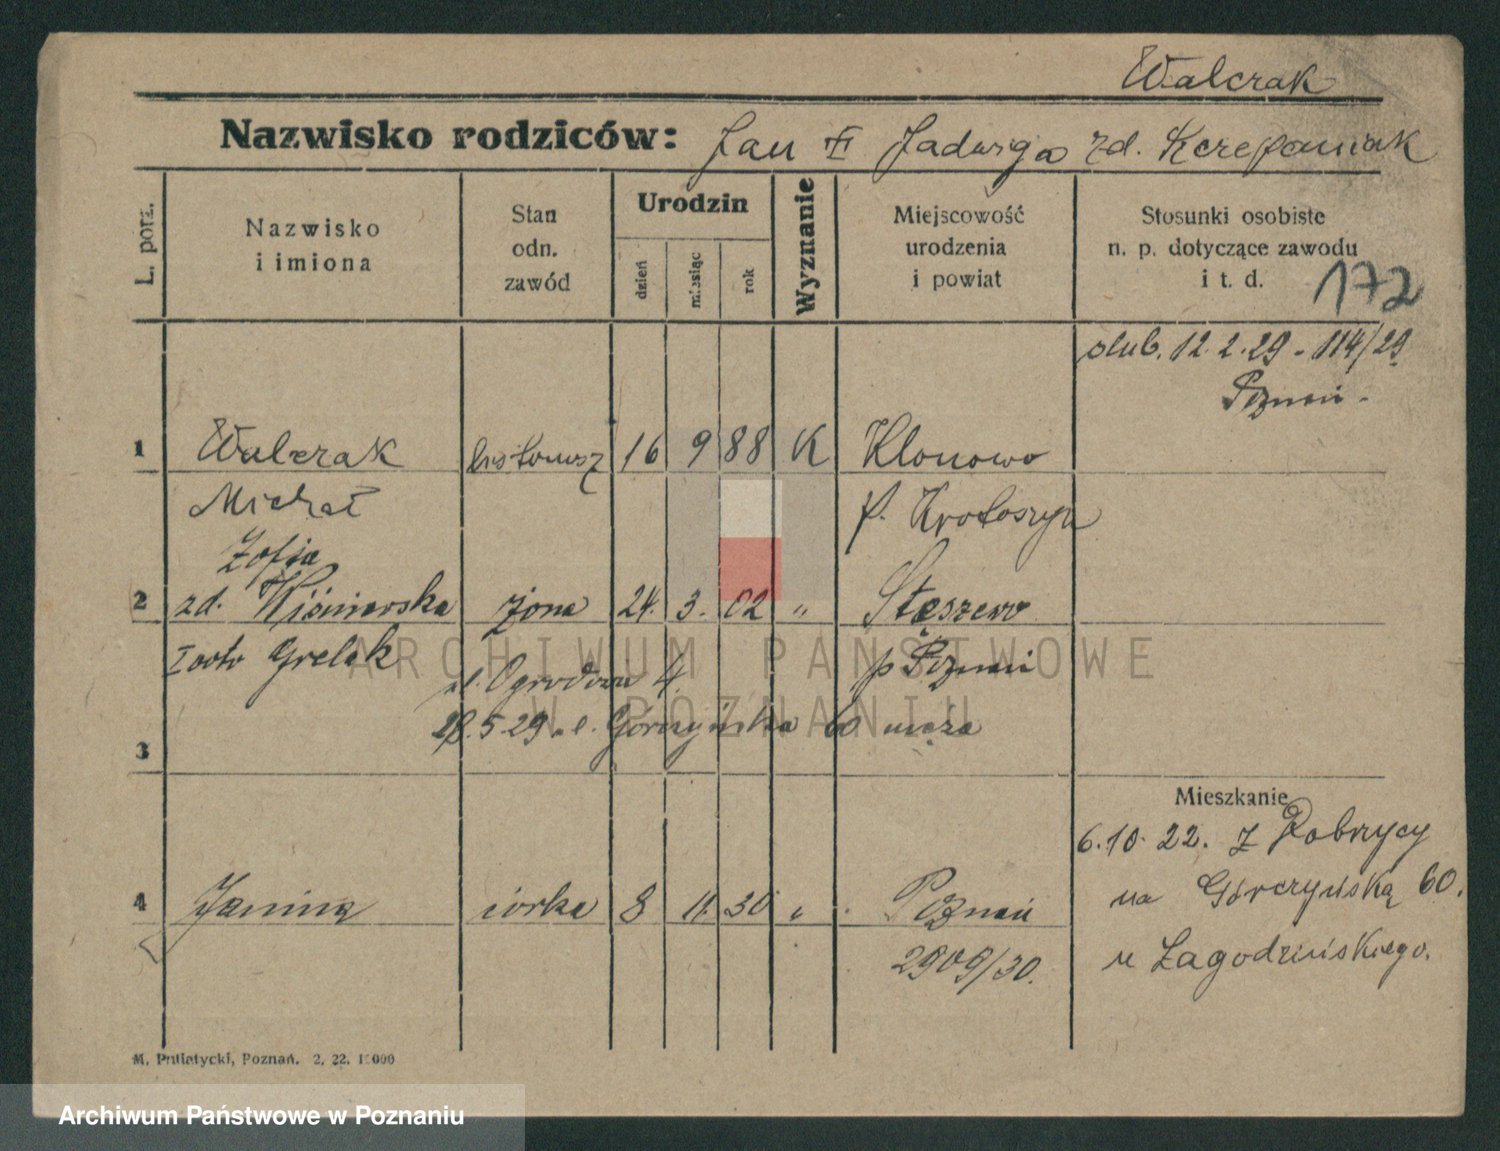 Walczak
Nazwisko rodziców: Jan Jadwiga zd.
L. porz.
Nazwisko
i imiona
Stan
odn.
zawód
Urodzin
dzień
miesiąc
rok
Wyznanie
Miejscowość
urodzenia
i powiat
Stosunki osobiste
n. p. dotyczące zawodu
i t. d.
172
slub. 12.2.29 - 114/29
Poznań.
1 Walczak listonosz 16 9 88 K Klonowo
Michał p. Krotoszyn
Zofja
2 zd. Wiśniewska żona 24. 3. 02 " Stęszewo
Grelak p Poznań
ul. Ogrodowa 4.
28.5.29. Górczyńska 60 męża
3
Mieszkanie
6.10.22. z Dobrzycy
na Górczyńską 60.
u Łagodzińskiego.
4 Janina córka 8 11. 30 " Poznań
2909/30.
M. Putiatycki, Poznań. 2. 22. 1000
ARCHIWUM PAŃSTWOWE
W POZNANIU
Archiwum Państwowe w Poznaniu